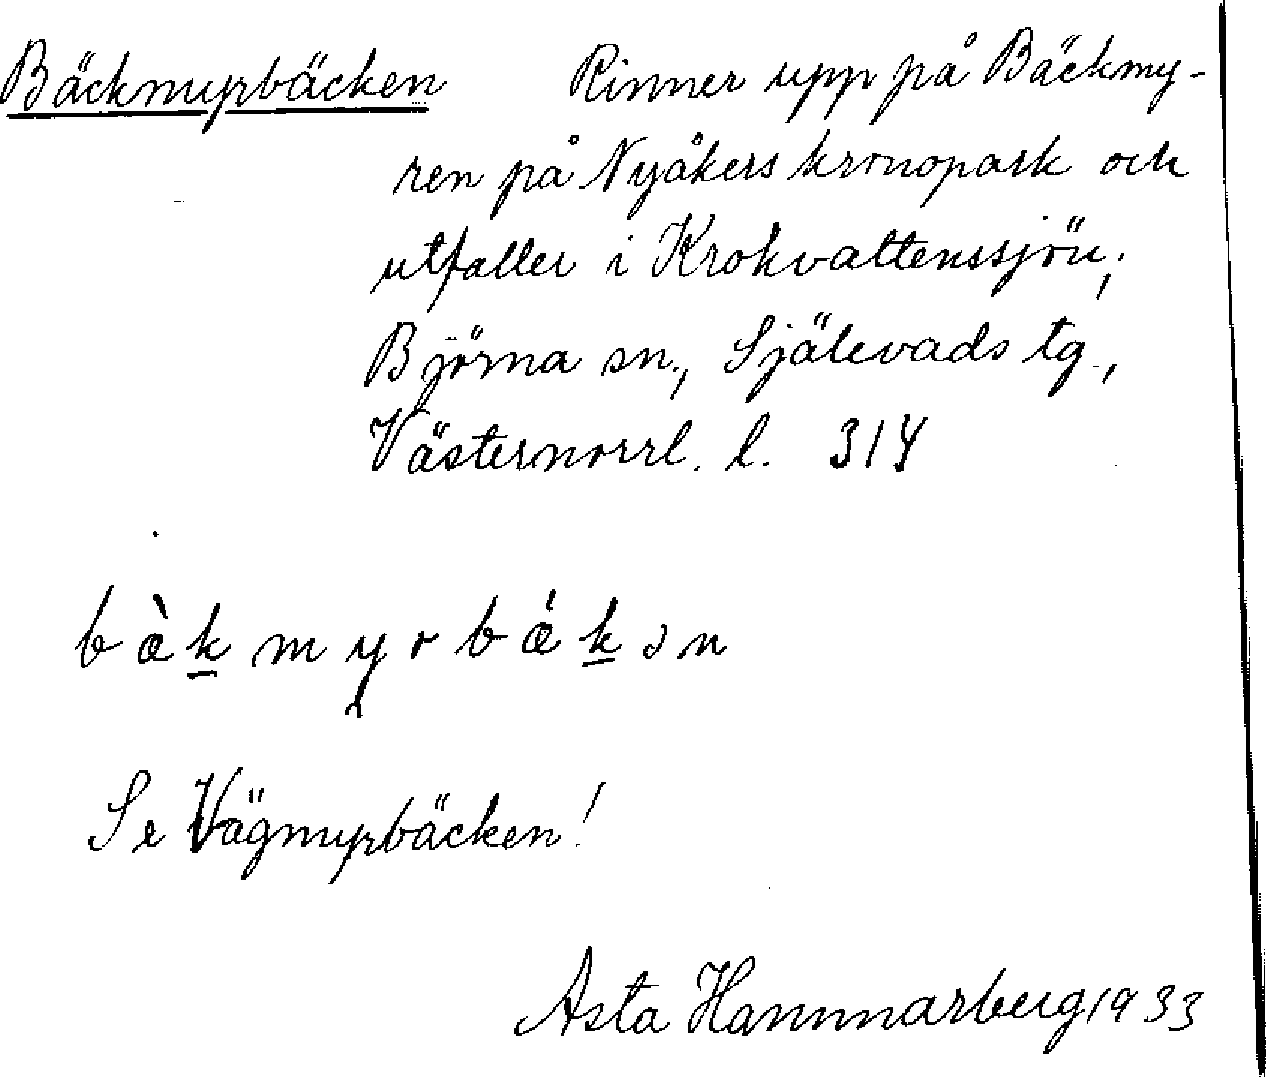 Bäckmyrbäcken Rinner upp på Bäckmy-
ren på Nyåkers kronopark och
utfaller i Krokvattenssjön;
Björna sn., Själevads tg.,
Västernorrl. l. 314
bæ̀k̲myrbǽk̲ən
Se Vägmyrbäcken!
Asta Hammarberg 1933